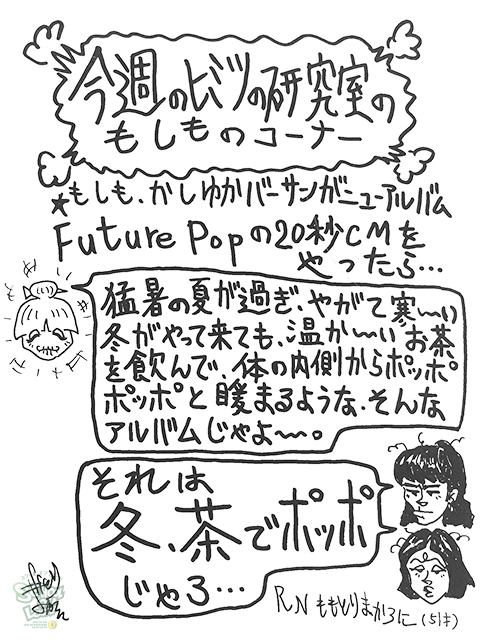 今週のヒミツの研究室の
もしものコーナー
★もしも、かしゆかバーサンがニューアルバム
Future Popの20秒CMを
やったら…
猛暑の夏が過ぎ、やがて寒〜い
冬がやって来ても、温か〜いお茶
を飲んで、体の内側からポッポ
ポッポと暖まるような、そんな
アルバムじゃよ〜。
それは
冬、茶でポッポ
じゃろ…
RN ももとりまかろに(51才)